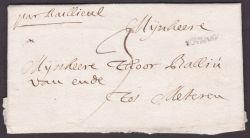 par Bailleul
Mijnheere
Mijnheere Thoor Balliu
van ende
Tot Meteren